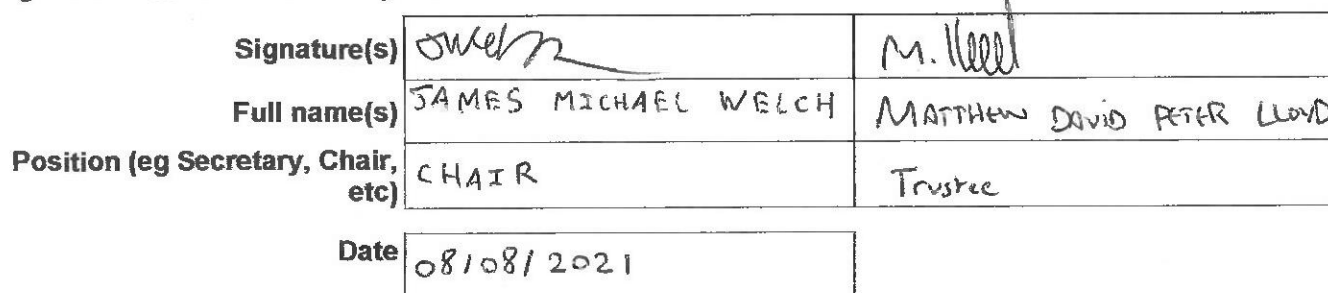 Signature(s) M.
Full name(s) JAMES MICHAEL WELCH MATTHEW DAVID PETER LLOYD
Position (eg Secretary, Chair, etc) CHAIR Trustee
Date 08/08/2021